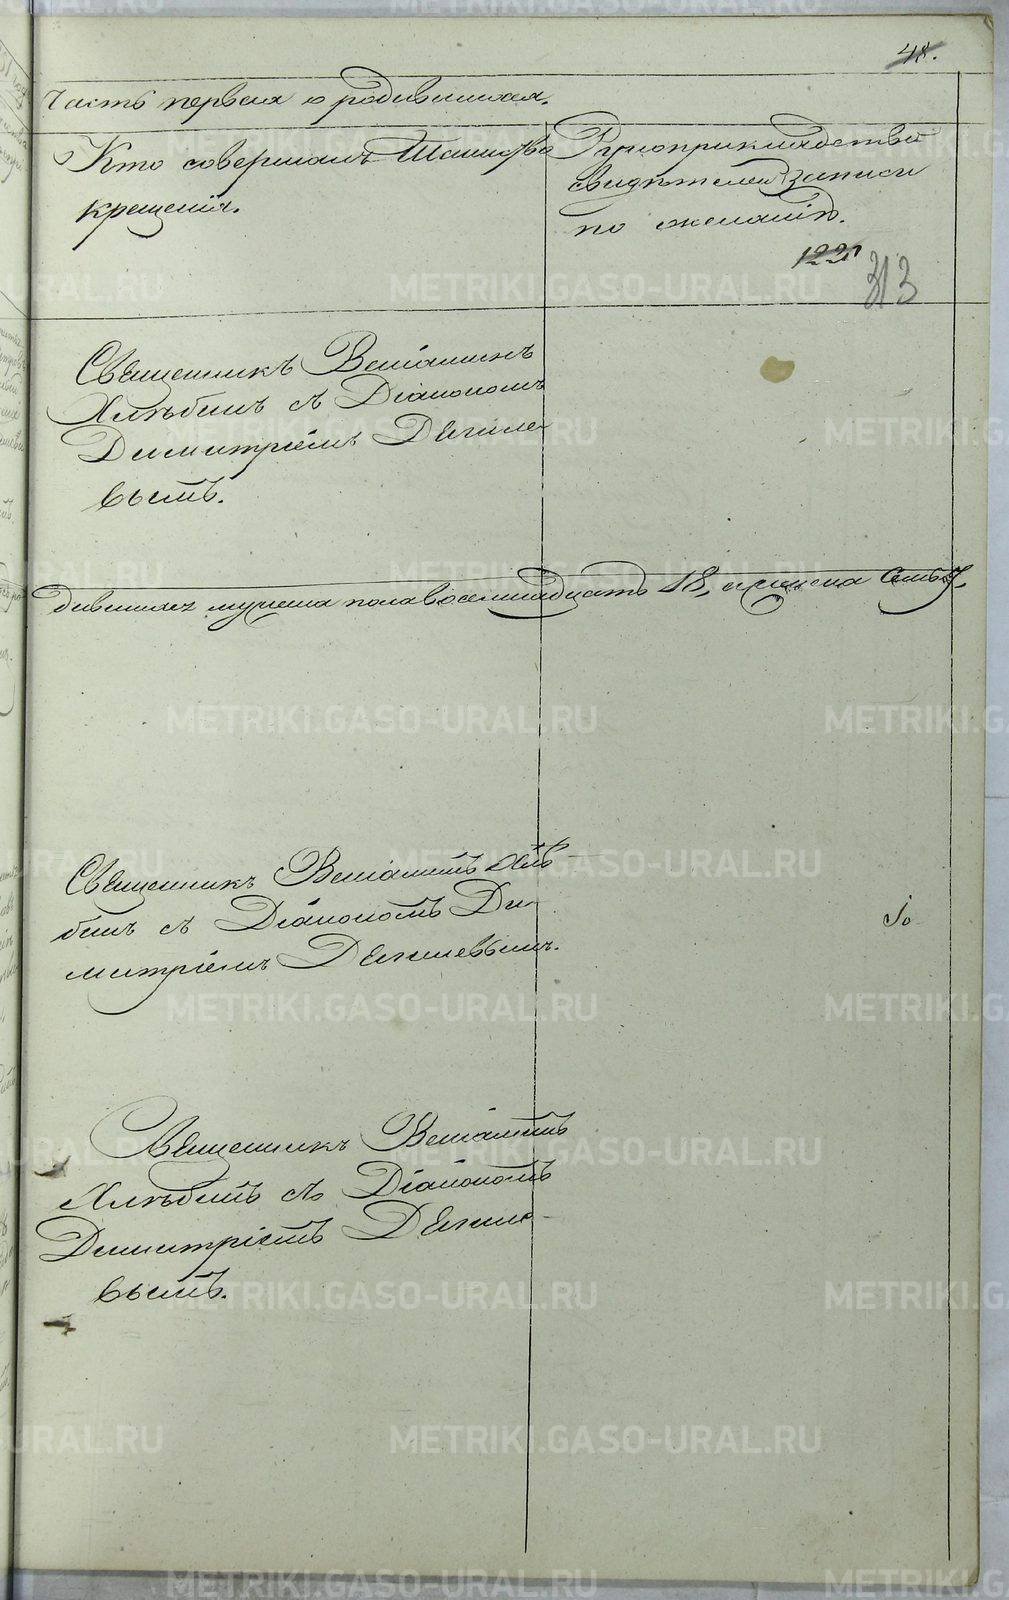 48.
Часть первая о родившихся.
Кто совершалъ Таинство
крещенія.
Рукоприкладство
свидѣтелей записи
по желанію.
122
313
Священникъ Веніаминъ
Хлѣбинъ съ Діакономъ
Димитріемъ Дягиле-
вымъ.
дившихся мужеска пола восемнадцать 18, женска семь 7.
Священникъ Веніаминъ Хлѣ-
бинъ съ Діакономъ Ди-
митріемъ Дягилевымъ.
Священникъ Веніаминъ
Хлѣбинъ съ Діакономъ
Димитріемъ Дягиле-
вымъ.
METRIKI.GASO-URAL.RU